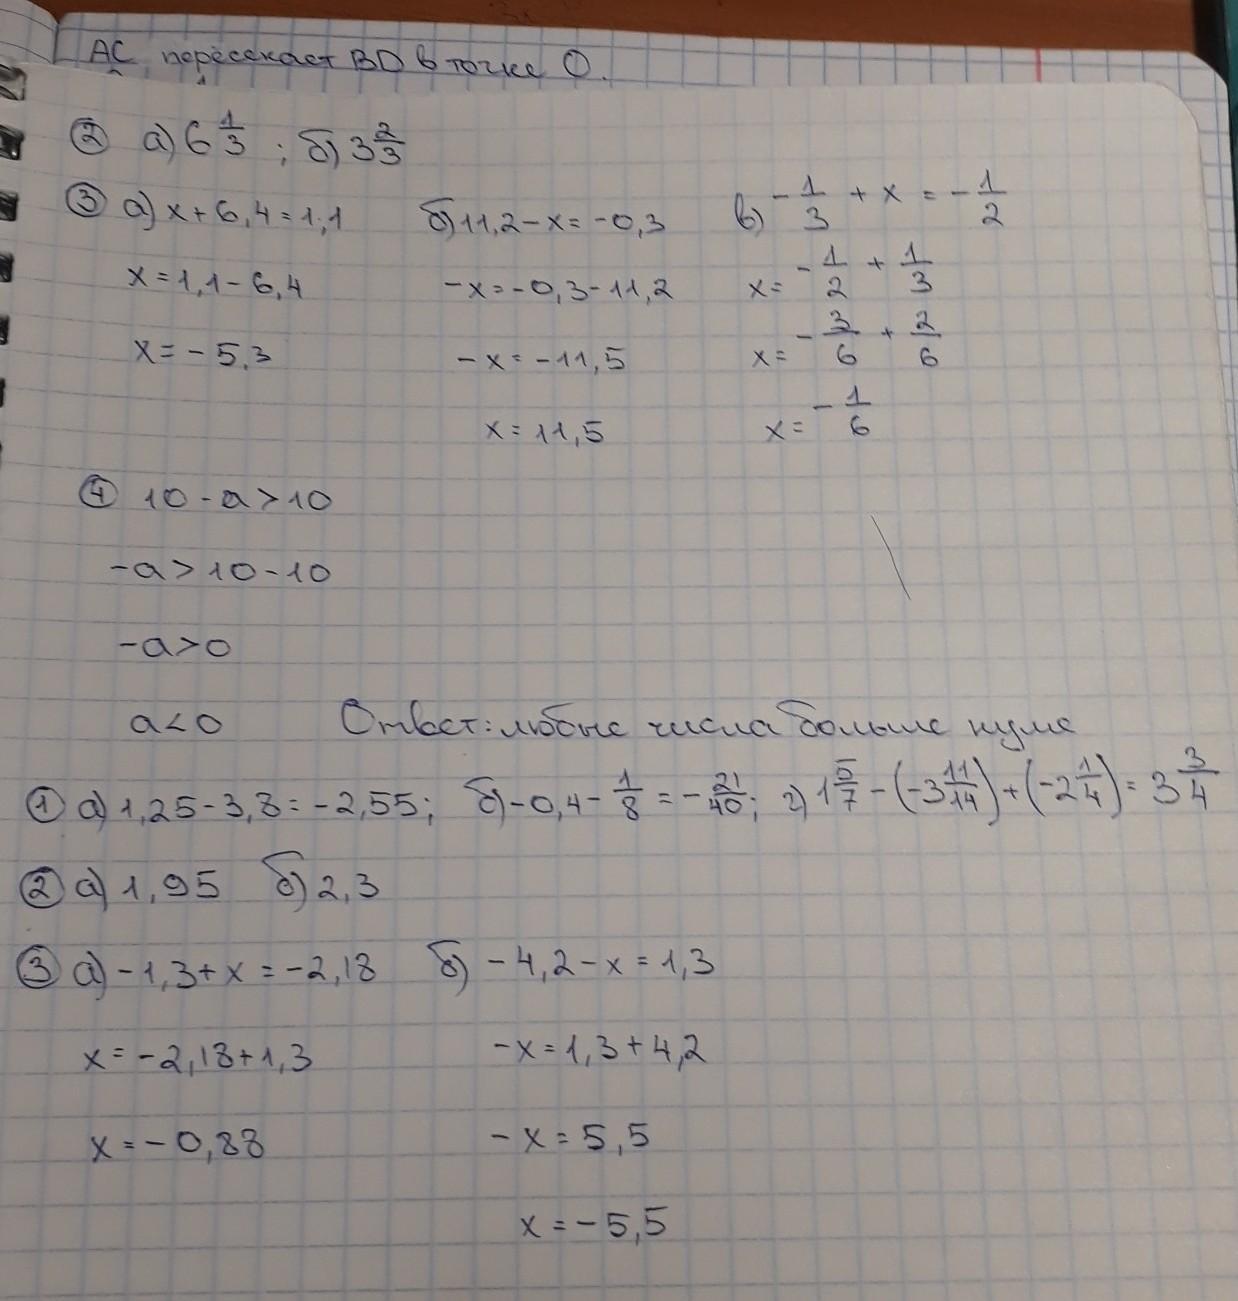 AC пересекает BD в точке O.
② а) 6 1/3 ; б) 3 2/3
③ а) x + 6,4 = 1,1 б) 11,2 - x = -0,3 в) -1/3 + x = -1/2
x = 1,1 - 6,4 -x = -0,3 - 11,2 x = -1/2 + 1/3
x = -5,3 -x = -11,5 x = -3/6 + 2/6
x = 11,5 x = -1/6
④ 10 - a > 10
-a > 10 - 10
-a > 0
a < 0 Ответ: любые числа больше нуля
① а) 1,25 - 3,8 = -2,55; б) -0,4 - 1/8 = -21/40; г) 1 5/7 - (-3 11/14) + (-2 1/4) = 3 3/4
② а) 1,95 б) 2,3
③ а) -1,3 + x = -2,18 б) -4,2 - x = 1,3
x = -2,18 + 1,3 -x = 1,3 + 4,2
x = -0,88 -x = 5,5
x = -5,5